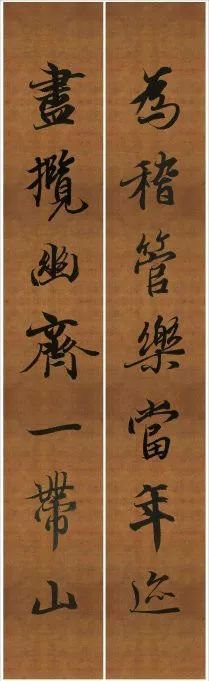 為稽管樂當年迹
盡攬幽齊一帶山